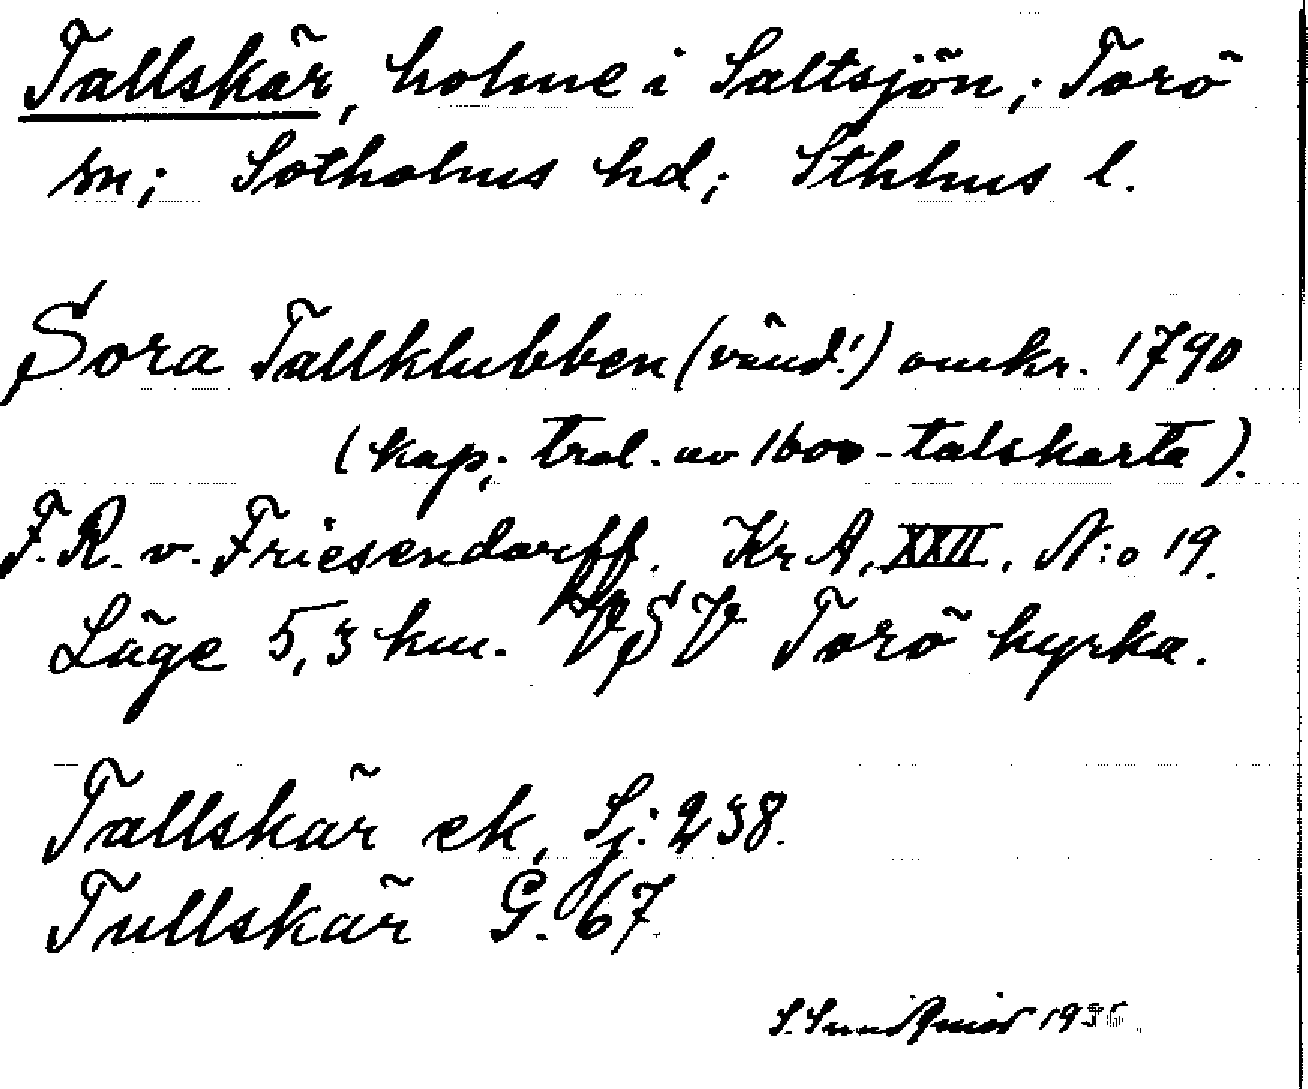 Tallskär, holme i Saltsjön; Torö
sn; Sotholms hd; Sthlms l.
Sora Tallklubben (vänd!) omkr. 1790
(kap; trol. av 1600-talskarta).
F.R. v. Friesendorff. Kr A, XXII, N:o 19.
Läge 5,3 km. VSV Torö kyrka.
Tallskär ek, Sj: 238.
Tullskär G. 67